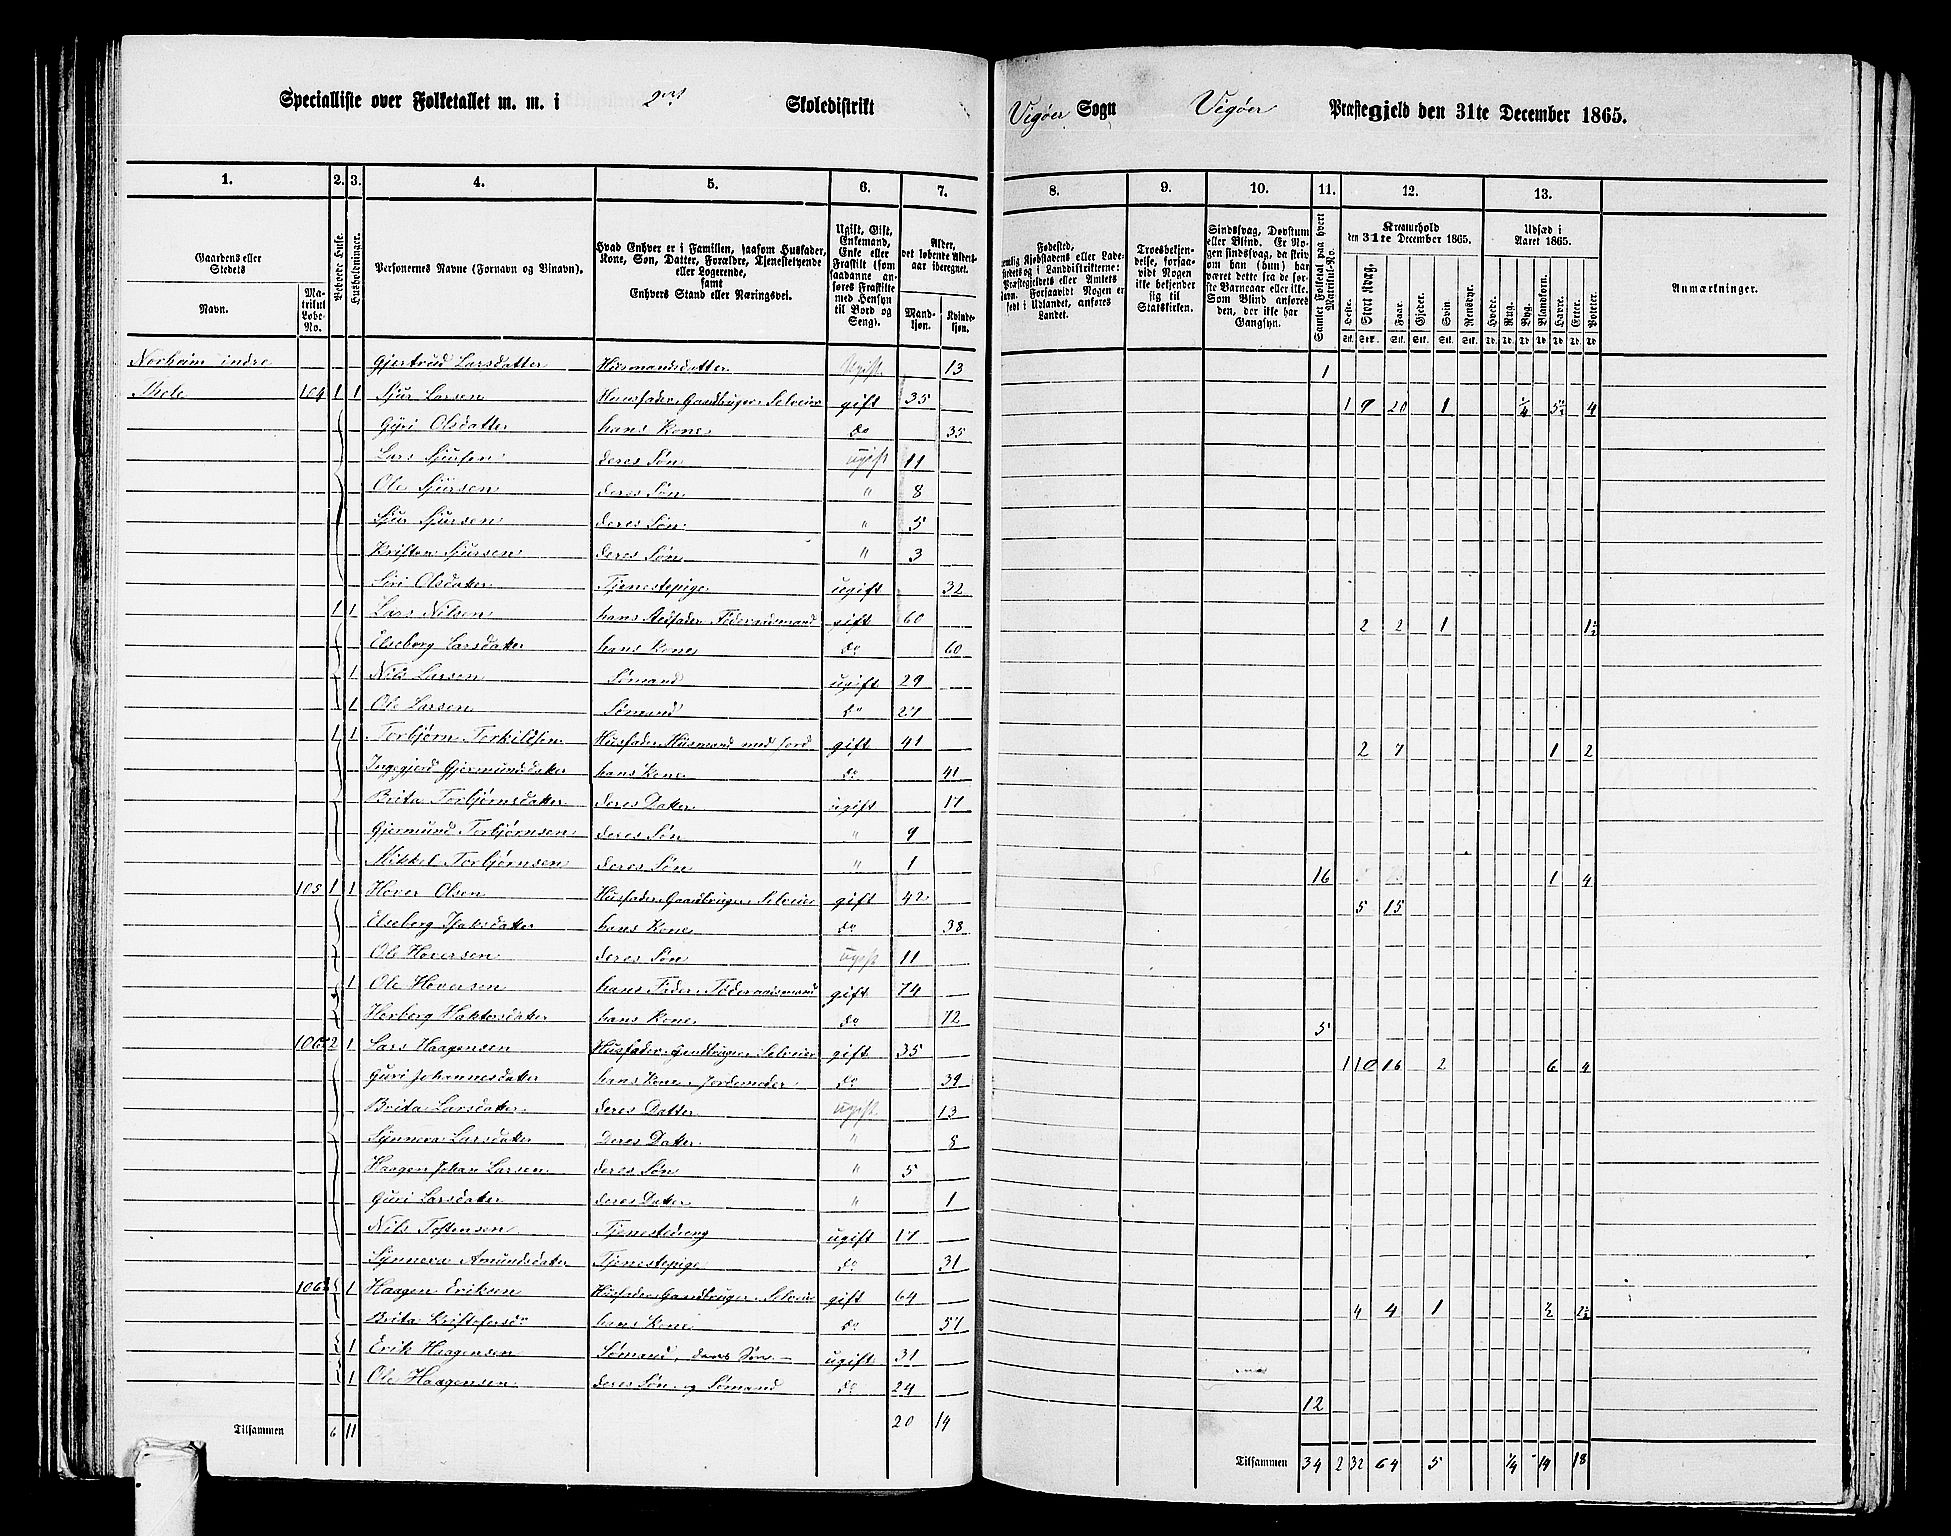 Specialliste over Folketallet m. m. i 2det Skoledistrikt Vigøer Sogn Vigøer Præstegjeld den 31te December 1865.
1. 2. 3. 4. 5. 6. 7. 8. 9. 10. 11. 12. 13.
Gaardens eller Stedets Navn. Matrikul Løbe-No. Beboede Huse. Husholdninger. Personernes Navne (Fornavn og Vinavn). Hvad Enhver er i Familien, saasom Husfader, Kone, Søn, Datter, Forældre, Tjenestetyende eller Logerende, samt Enhvers Stand eller Næringsvei. Ugift, Gift, Enkemand, Enke eller Fraskilt (som saadanne anføres Fraskilte med Hensyn til Bord og Seng). Alder, det løbende Aldersaar iberegnet. Mandkjøn. Kvindekjøn.
Fødested, Troesbekjendelse, forsaavidt Nogen ikke bekjender sig til Statskirken. Sindssvag, Døvstum eller Blind. Er Nogen sindssvag, da skrives om han (hun) har været dette fra de første Barneaar eller ikke. Som Blind anføres den, der ikke har Gangsyn. Samlet Folketal paa hvert Matrikul-No. Kreaturhold den 31te December 1865. Heste. Stort Kvæg. Faar. Gjeder. Svin. Rensdyr. Udsæd i Aaret 1865. Hvede. Rug. Byg. Blandkorn. Havre. Erter. Poteter. Anmærkninger.
Norheim indre Gjertrud Larsdatter Huusmandsdatter Ugift 13 1
104 1 1 Sjur Larsen Huusfader Gaardbruger Selveier gift 35 1 9 20 1 ¼ 5½ 4
Gyri Olsdatter hans Kone do 35
Lars Sjursen deres Søn ugift 11
Ole Sjursen deres Søn " 8
Sjur Sjursen deres Søn " 5
Kristen Sjursen deres Søn " 3
Siri Olsdatter Tjenestepige ugift 32
1 1 Lars Nilsen hans Føderaadsmand gift 60 2 2 1 1½
Elseborg Larsdatter hans Kone do 60
1 Nils Larsen Sømand ugift 29
1 Ole Larsen Sømand do 27
1 1 Torbjørn Torkildsen Husfader Husmand med Jord gift 41 2 7 1 2
Ingegjerd Gjermundsdatter hans Kone do 41
Brita Torbjørnsdatter deres Datter ugift 17
Gjermund Torbjørnsen deres Søn " 9
Mikkel Torbjørnsen deres Søn " 1 16
105 1 1 Hover Olsen Husfader Gaardbruger Selveier gift 42 5 15 1 4
Elseborg Isaksdatter hans Kone do 38
Ole Hoversen deres Søn ugift 11
1 Ole Hoversen hans Fader Føderaadsmand gift 74
Herborg Haktorsdatter hans Kone do 72 5
106 2 1 Lars Haagensen Husfader Gaardbruger Selveier gift 35 1 10 16 2 6 4
Guri Johannesdatter hans Kone Jordemoder do 39
Brita Larsdatter deres Datter ugift 13
Synneva Larsdatter deres Datter " 8
Haagen Johan Larsen deres Søn " 5
Guri Larsdatter deres Datter " 1
Nils Tostensen Tjenestedreng ugift 17
Synneva Amundsdatter Tjenestepige do 31
106 1 Haagen Eriksen Husfader Gaardbruger Selveier gift 64 4 4 1 ½ 2½
Brita Kristofersdr hans Kone do 57
1 Erik Haagensen Sømand, deres Søn ugift 31
1 Ole Haagensen deres Søn og Sømand do 24 12
Tilsammen 6 11 20 14 Tilsammen 34 2 32 64 5 ¼ 14 18